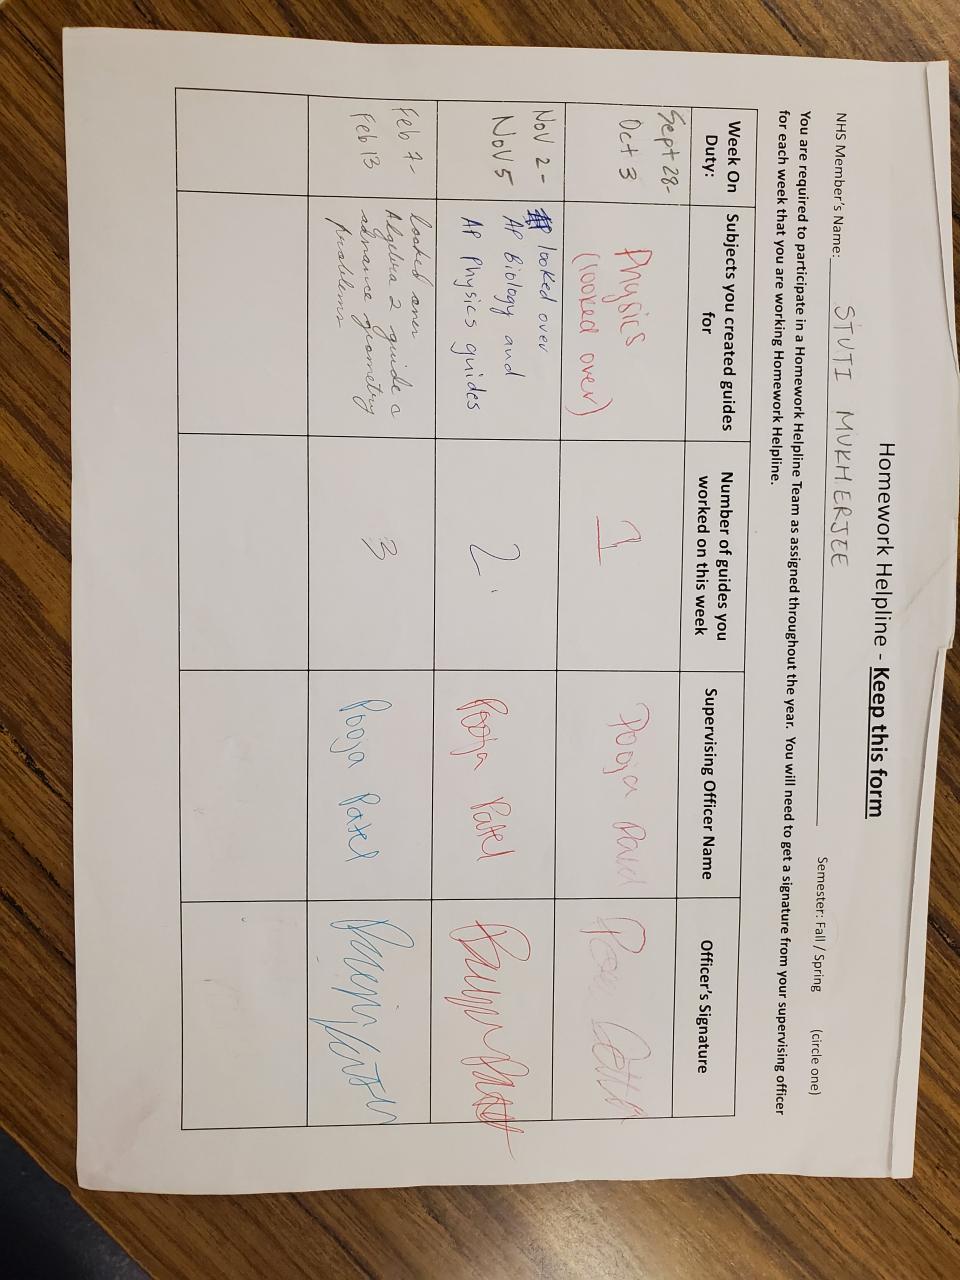 Homework Helpline - Keep this form
NHS Member's Name: STUTI MUKHERJEE
Semester: Fall / Spring (circle one)
You are required to participate in a Homework Helpline Team as assigned throughout the year. You will need to get a signature from your supervising officer
for each week that you are working Homework Helpline.
Week On
Duty:
Subjects you created guides
for
Number of guides you
worked on this week
Supervising Officer Name
Officer's Signature
Sept 28-
Oct 3
Physics
(looked over)
1
Pooja Patel
Nov 2 -
Nov 5
looked over
AP Biology and
AP Physics guides
2
Pooja Patel
Feb 7-
Feb 13
looked over
Algebra 2 guide &
advance geometry
problems
3
Pooja Patel